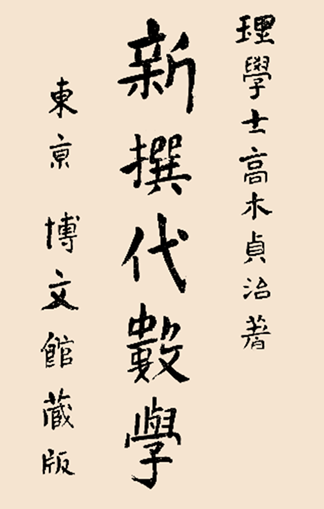 理學士高木貞治著
新撰代數學
東京 博文館藏版